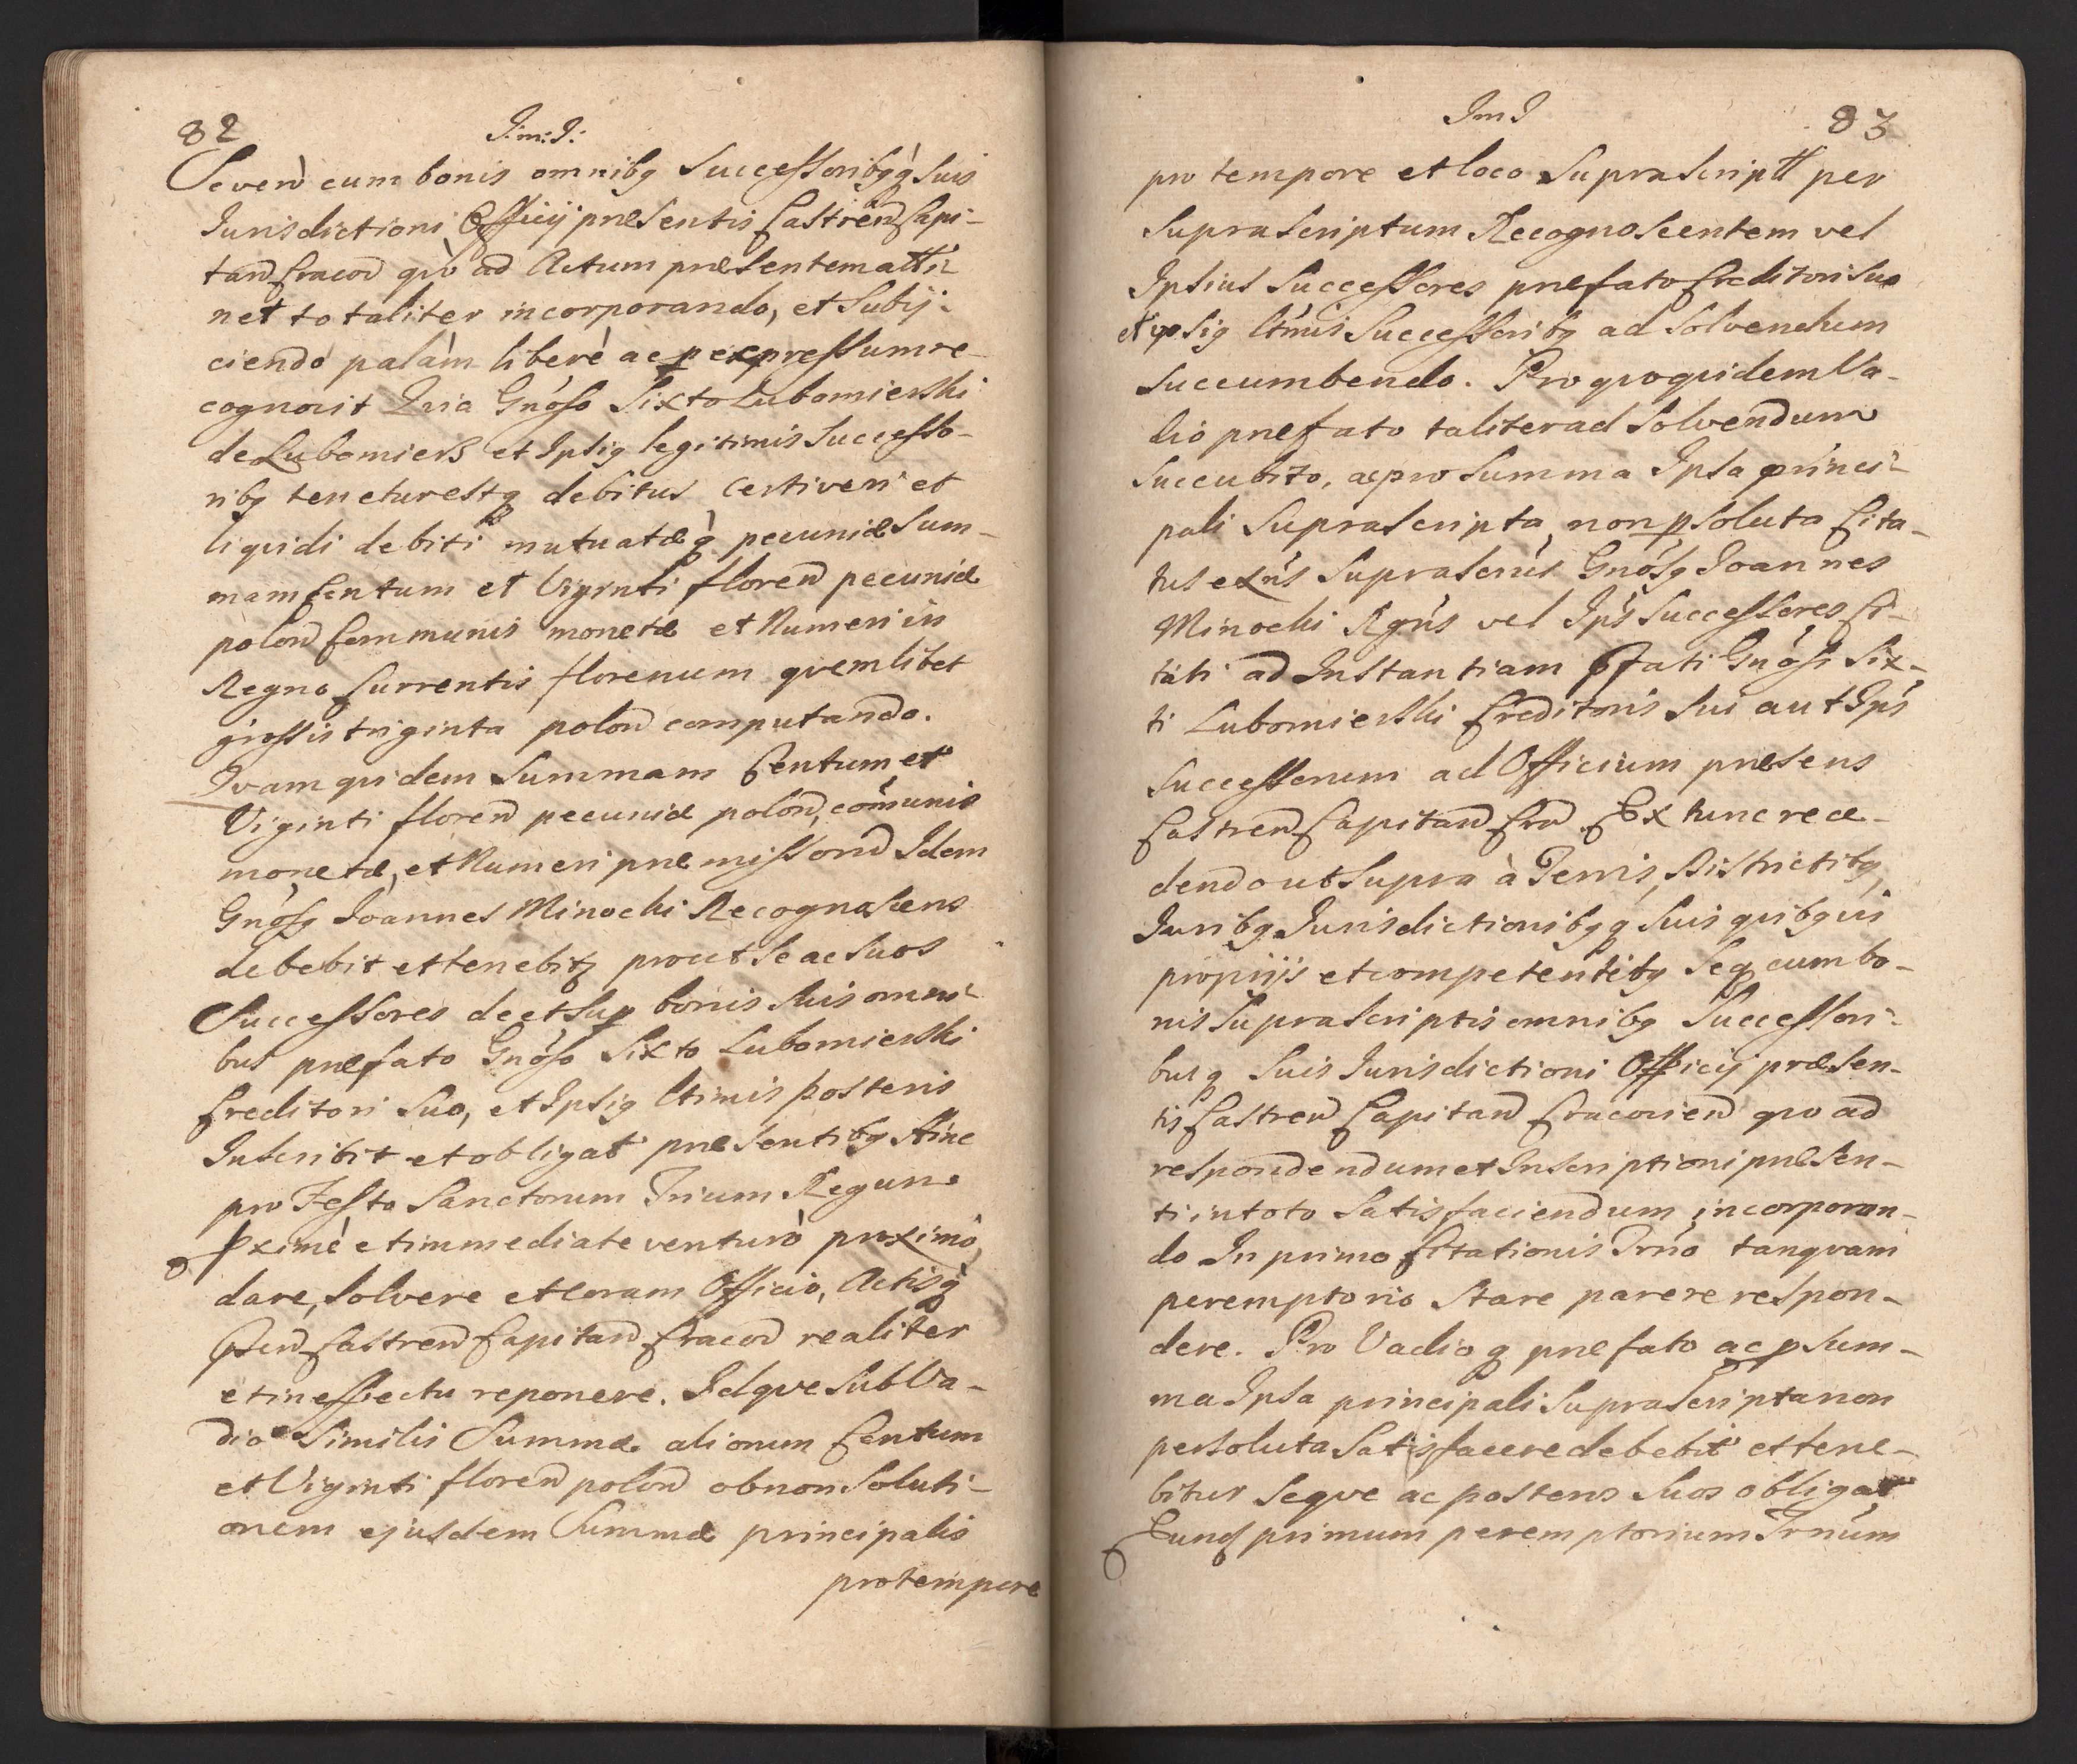 82
J:m:J:
Severò cum bonis omnibq Successoribqq̀ Suis
Jurisdictioni Officij præsentis Castren̄ Capi-
tan̄ Cracov̄ qvò ad Actum præsentem atti-
net totaliter incorporando, et Subij-
ciendo palàm liberè ac p expressum re-
cognovit Qvia Gnóso Sixto Lubomierski
de Lubomierz et Ipsiq legitimis Successo-
ribq tenetur estq debitus certi veri et
liqvidi debiti mutuatæq̀ pecuniæ Sum-
mam Centum et Viginti floren̄ pecuniæ
polon̄ Communis monetæ et Numeri in
Regno Currentis florenum qvemlibet
grossis triginta polon̄ computando.
Qvam qvidem Summam Centum et
Viginti floren̄ pecuniæ polon̄, com̃unis
monetæ, et Numeri præmissorū Idem
Gnósq Joannes Minocki Recognoscens
debebit et tenebitq prout Se ac Suos
Successores de et Sup bonis Suis omni-
bus præfato Gnóso Sixto Lubomierski
Creditori Suo, et Ipsiq ltimis posteris
Inscribit et obligat præsentibq Hinc
pro Festo Sanctorum Trium Regum
pximè et immediate venturò proximò,
dare, Solvere et coram Officio, Actisq̀
pñ Castren̄ Capitan̄ Cracov̄ realiter
et in effectu reponere. Idqve Sub Va-
dio Similis Summæ aliorum Centum
et Viginti floren̄ polon̄ ob non Soluti-
onem ejusdem Summæ principalis
pro tempore
JmJ
83
pro tempore et loco Suprascriptt per
Suprascriptum Recognoscentem vel
Ipsius Successores præfato Creditori Suo
et ipsiq ltimis Successoribq ad Solvendum
Succumbendo. Pro qvo qvidem Va-
dio præfato taliter ad Solvendum
Succubito, ac pro Summa Ipsa princi-
pali Suprascripta, non psoluta Cita-
tus exńs Suprascrús Gnósq Joannes
Minocki Rgńs vel Ips Successores Ci-
tati ad Instantiam pfati Gnósi Six-
ti Lubomierski Creditoris Sui aut Ips
Successorum ad Officium præsens
Castren̄ Capitan̄ Crā Ex tunc rece-
dendo ut Supra à Terris, Districtibq,
Juribq Jurisdictionibqq Suis qvibqvis
proprijs et competentibq Seq cum bo-
nis Suprascriptis omnibq Successori-
busq Suis Jurisdictioni Officij præsen-
tis Castren̄ Capitan̄ Cracovien̄ qvo ad
respondendum et Inscriptioni præsen-
ti in toto Satisfaciendum incorporan-
do In primo Citationis Trńo tanqvam
peremptorio Stare parere respon-
dere. Pro Vadioq præfato ac p Sum-
ma Ipsa principali Suprascripta non
persoluta Satisfacere debebit et tene-
bitur Seqve ac posteros Suos obligat
Eunq primum peremptorium Trńum